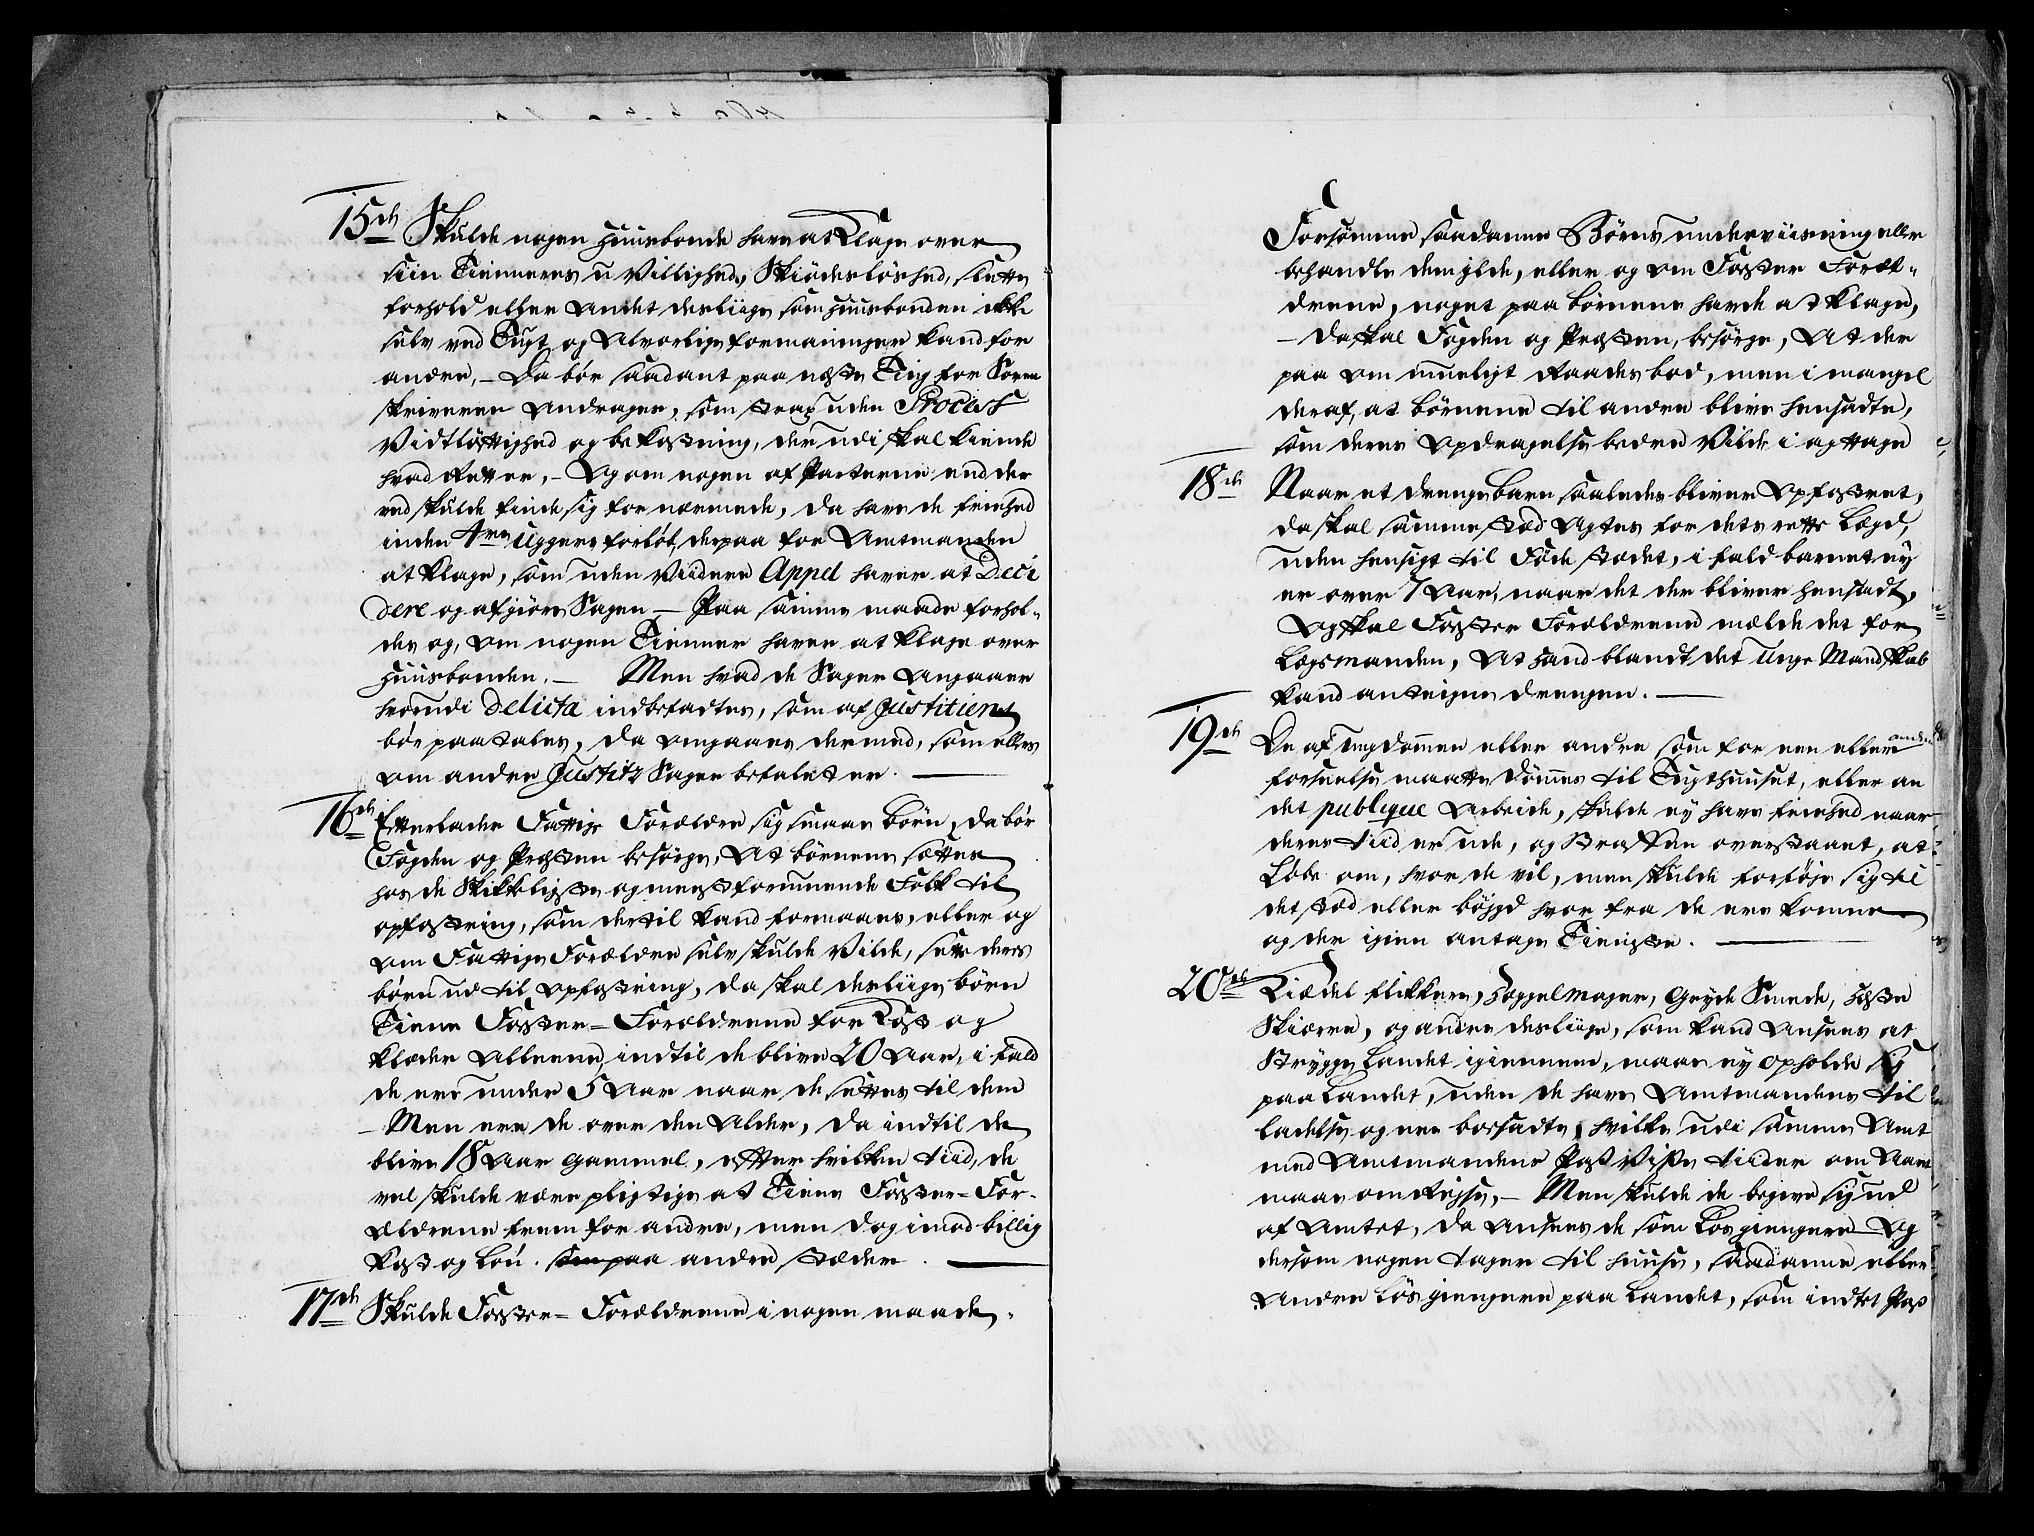 15de Skulde nogen Huusbonde have at Klage over
siin Tienneres u Villighed, Skiødesløshed, slette
forhold eller Andet desliige som Huusbonden ikke
selv ved Tugt og Alvorlige formaninger kand for
andre, – Da bør saadant paa næste Ting for Soren
skriveren Andrages, som strax uden Process
Vidtløftighed og bekostning, der udi skal kiende
hvad Ret er, – Og om nogen af Parterne end der
ved skulde finde sig fornærmede, da have de friehed
inden 4re Uggers forløb, derpaa for Amtmanden
at klage, som uden Viidere Appel haver at Deci
dere og afgiøre Sagen – Paa samme maade forhol-
des og, om nogen Tienner haver at klage over
Huusbonden. – Men hvad de Sager Angaaer
hvorudi Delicta indbefattes, som af Justitien
bør paatales, da omgaaes dermed, som ellers
om andre Justitz Sager befalet er.
16de Efterlader Fattige Forældre sig smaae Børn, da bør
Fogden og Præsten besørge, At børnene sættes
hos de Skikkeligste og meest formuende Folk til
opfostring, som dertil kand formaaes, eller og
om Fattige Forældre selv skulde Vilde, sette deres
børn ud til opfostring, da skal desliige børn
Tiene Foster-Forældrene for Kost og
klæder Alleene, indtil de blive 20 Aar, i fald
de ere under 5 Aar naar de settes til dem
– Men ere de over den Alder, da indtil de
blive 18 Aar gammel, efter hvilken tiid, de
vel skulde være pligtige at Tiene Foster-For-
ældrene frem for andre, men dog imod billig
kost og Løn. som paa andre stæder.
17de Skulde Foster-Forældrene i nogen maade,
Forsømme saadanne Børns underviisning eller
behandle dem ilde, eller og om Foster Foræl-
drene, noget paa børnene havde at klage,
– Da skal Fogden og Præsten, besørge, At der
paa om mueligt Raades bod, men i mangel
deraf, at børnene til andre blive hensadte,
som deres Opdragelse bedre Vilde i agttage
18de Naar et drenge Barn saaledes bliver Opfostret,
da skal samme stæd Agtes for dets rette Lægd,
uden hensigt til Føde stædet, i fald barnet ey
er over 7 Aar, naar det der bliver hensadt,
Og skal Foster Forældrene melde det for
Lægsmanden, At hand blandt det Unge Mandskab
kand anteigne drengen.
19de De af Ungdommen eller andre som for een eller anden
forseelse maatte dømmes til Tugthuuset, eller an
det publique Arbeide, skulde ey have friehed naar
deres tiid er ude, og Straffen overstaaet, at
Løbe om, hvor de vil, men skulde forføje sig til
det stæd eller bøjgd hvor fra de ere komne
og der igien antage Tieniste.
20de Kiædel flikkere, Hoppelmager, Gryde Smede, Heste
Skiærere, og andre desliige, som kand Ansees at
Strygge Landet igiennem, maae ey opholde sig
paa Landet, uden de have Amtmandens til
ladelse og ere bosadte, hvilke udi samme Amt
med Amtmandens Pass Visse tiider om Aaret
maae omrejse, – Men skulde de begive sig ud
af Amtet, da Ansees de som Løsgiengere Og
dersom nogen tager til huuse, saadanne eller
Andre Løsgiengere paa Landet, som indtet Pass